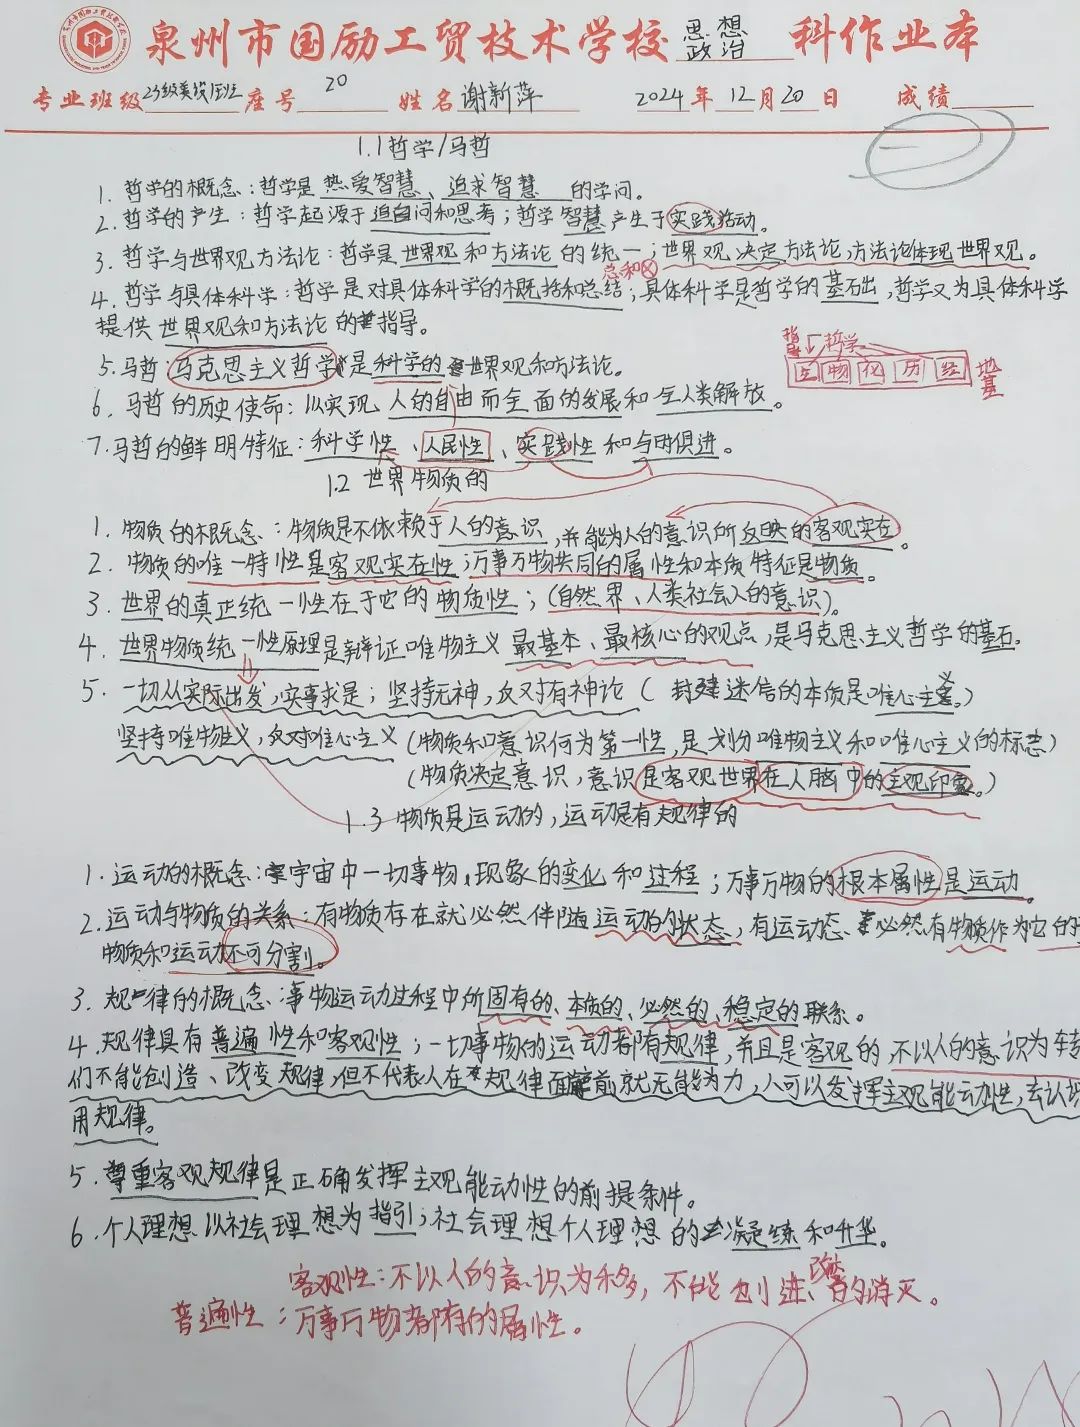 泉州市国励工贸技术学校 思想政治 科作业本
专业班级 座号 20 姓名 谢新萍 2024年12月20日 成绩
1.1哲学/马哲
1. 哲学的概念：哲学是 热爱智慧、追求智慧 的学问。
2. 哲学的产生：哲学起源于追自问和思考；哲学智慧产生于实践活动。
3. 哲学与世界观方法论：哲学是世界观和方法论的统一；世界观决定方法论，方法论体现世界观。
总和
4. 哲学与具体科学：哲学是对具体科学的概括和总结；具体科学是哲学的基础出，哲学又为具体科学
提供世界观和方法论的指导。
指导 哲学
5. 马哲：马克思主义哲学是科学的世界观和方法论。
生 物 化 历 经 地基
6. 马哲的历史使命：以实现人的自由而全面的发展和全人类解放。
7. 马哲的鲜明特征：科学性、人民性、实践性和与时俱进。
1.2 世界物质的
1. 物质的概念：物质是不依赖于人的意识，并能为人的意识所反映的客观实在。
2. 物质的唯一特性是客观实在性；万事万物共同的属性和本质特征是物质。
3. 世界的真正统一性在于它的物质性；（自然界、人类社会人的意识）。
4. 世界物质统一性原理是辩证唯物主义最基本、最核心的观点，是马克思主义哲学的基石。
5. 一切从实际出发，实事求是；坚持无神，反对有神论（封建迷信的本质是唯心主义。）
坚持唯物主义，反对唯心主义（物质和意识何为第一性，是划分唯物主义和唯心主义的标志）
（物质决定意识，意识是客观世界在人脑中的主观印象。）
1.3 物质是运动的，运动是有规律的
1. 运动的概念：宇宙中一切事物、现象的变化和过程；万事万物的根本属性是运动。
2. 运动与物质的关系：有物质存在就必然伴随运动的状态，有运动态、必然有物质作为它的
物质和运动不可分割。
3. 规律的概念：事物运动过程中所固有的、本质的、必然的、稳定的联系。
4. 规律具有普遍性和客观性；一切事物的运动都有规律，并且是客观的，不以人的意识为转
们不能创造、改变规律，但不代表人在规律面前就无能为力，人可以发挥主观能动性，去认识
用规律。
5. 尊重客观规律是正确发挥主观能动性的前提条件。
6. 个人理想以社会理想为指引；社会理想个人理想的凝练和升华。
客观性：不以人的意识为移，不能创造、改的消灭。
普遍性：万事万物都有的属性。